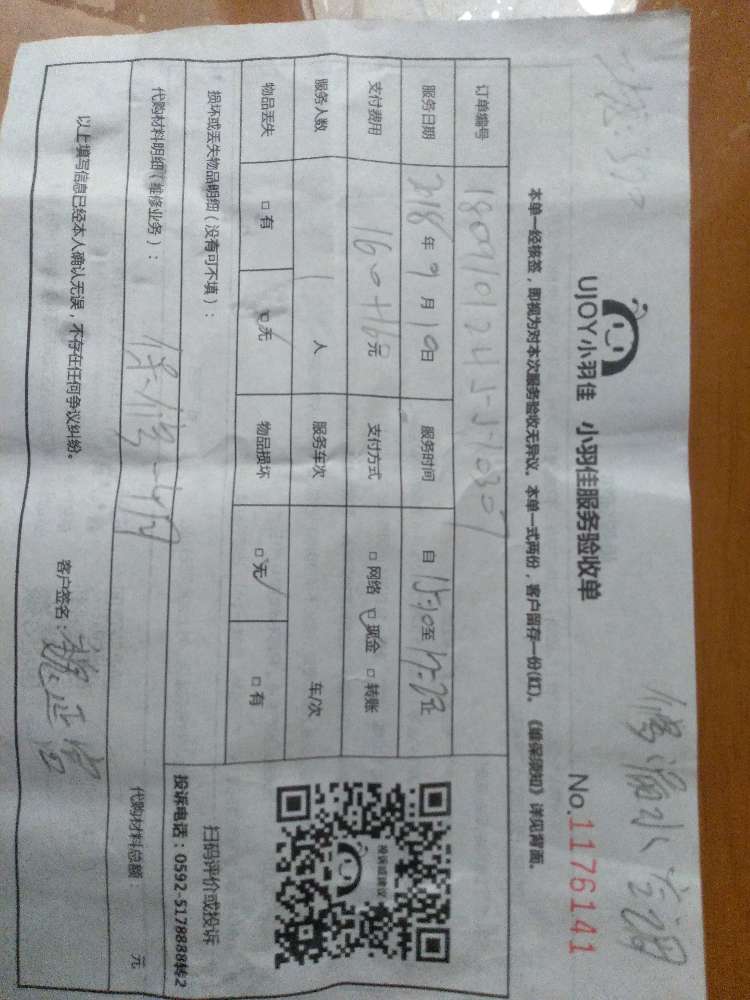 修漏水空调
UJOY小羽佳 小羽佳服务验收单
No.1176141
本单一经核签，即视为对本次服务验收无异议。本单一式两份，客户留存一份(红)。《维保须知》详见背面。
订单编号
服务日期 2018年9月10日 服务时间 自15:10至17:23止
支付费用 160+16元 支付方式 □网络 ☑现金 □转账
服务人数 1人 服务车次 车/次
物品丢失 □有 ☑无 物品损坏 ☑无 □有
损坏或丢失物品明细（没有可不填）：
扫码评价或投诉
投诉电话：0592-5178888转2
投诉或建议
代购材料明细（维修业务）： 保修一个月
代购材料总额： 元
以上填写信息已经本人确认无误，不存在任何争议纠纷。 客户签名：